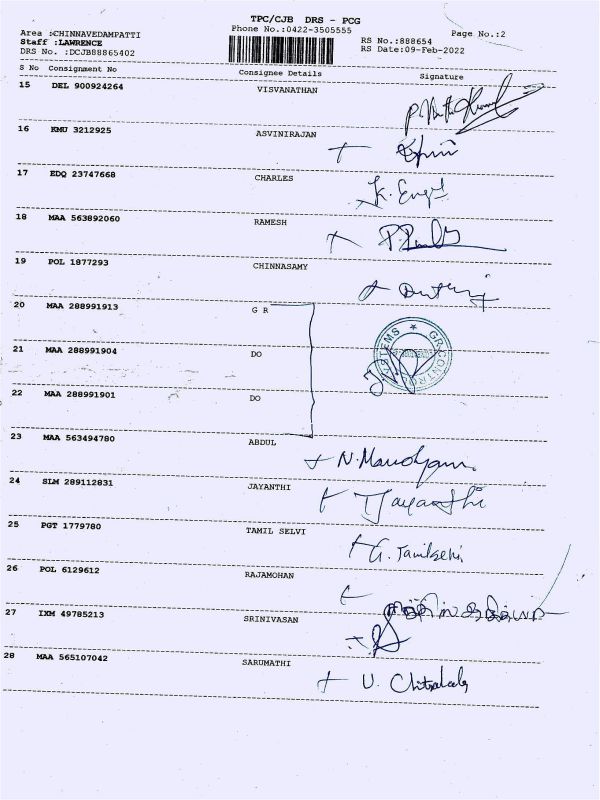 TPC/CJB DRS - PCG
Area :CHINNAVEDAMPATTI Phone No.:0422-3505555 RS No.:888654 Page No.:2
Staff :LAWRENCE RS Date:09-Feb-2022
DRS No. :DCJB88865402
S No Consignment No Consignee Details Signature
15 DEL 900924264 VISVANATHAN
16 KMU 3212925 ASVINIRAJAN
17 EDQ 23747668 CHARLES
18 MAA 563892060 RAMESH
19 POL 1877293 CHINNASAMY
20 MAA 288991913 G R
21 MAA 288991904 DO
22 MAA 288991901 DO
GR CONTROL SYSTEMS
23 MAA 563494780 ABDUL
24 SLM 289112831 JAYANTHI
T Jayanthi
25 PGT 1779780 TAMIL SELVI
26 POL 6129612 RAJAMOHAN
27 IXM 49785213 SRINIVASAN
28 MAA 565107042 SARUMATHI